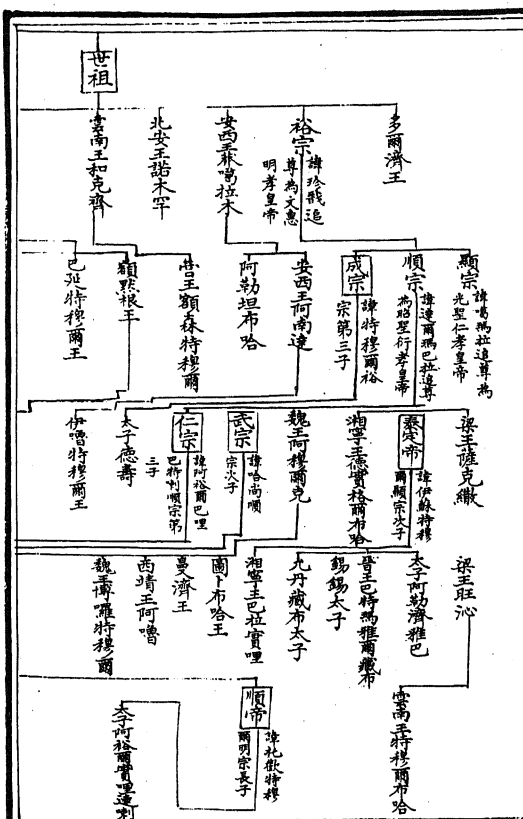 世祖
多爾濟王
裕宗
諱珍戩追
尊為文惠
明孝皇帝
安西王莽噶拉木
北安王諾木罕
雲南王和克齊
顯宗
諱噶瑪拉追尊為
光聖仁孝皇帝
順宗
諱達爾瑪巴拉追尊
為昭聖衍孝皇帝
成宗
諱特穆爾裕
宗第三子
安西王阿南達
阿勒坦布哈
營王額森特穆爾
額默根王
巴延特穆爾王
梁王薩克繖
泰定帝
諱伊蘇特穆
爾顯宗次子
湘寧王德實格爾布哈
魏王阿穆爾克
武宗
諱哈尚順
宗次子
仁宗
諱阿裕爾巴哩
巴特喇順宗第
三子
太子德壽
伊嚕特穆爾王
梁王旺沁
太子阿勒濟雅巴
晉王巴特瑪雅爾藏布
錫錫太子
允丹藏布太子
湘寧王巴拉實哩
圖卜布哈王
曼濟王
西靖王阿嚕
魏王博囉特穆爾
雲南王特穆爾布哈
順帝
諱托歡特穆
爾明宗長子
太子阿裕爾實哩達喇